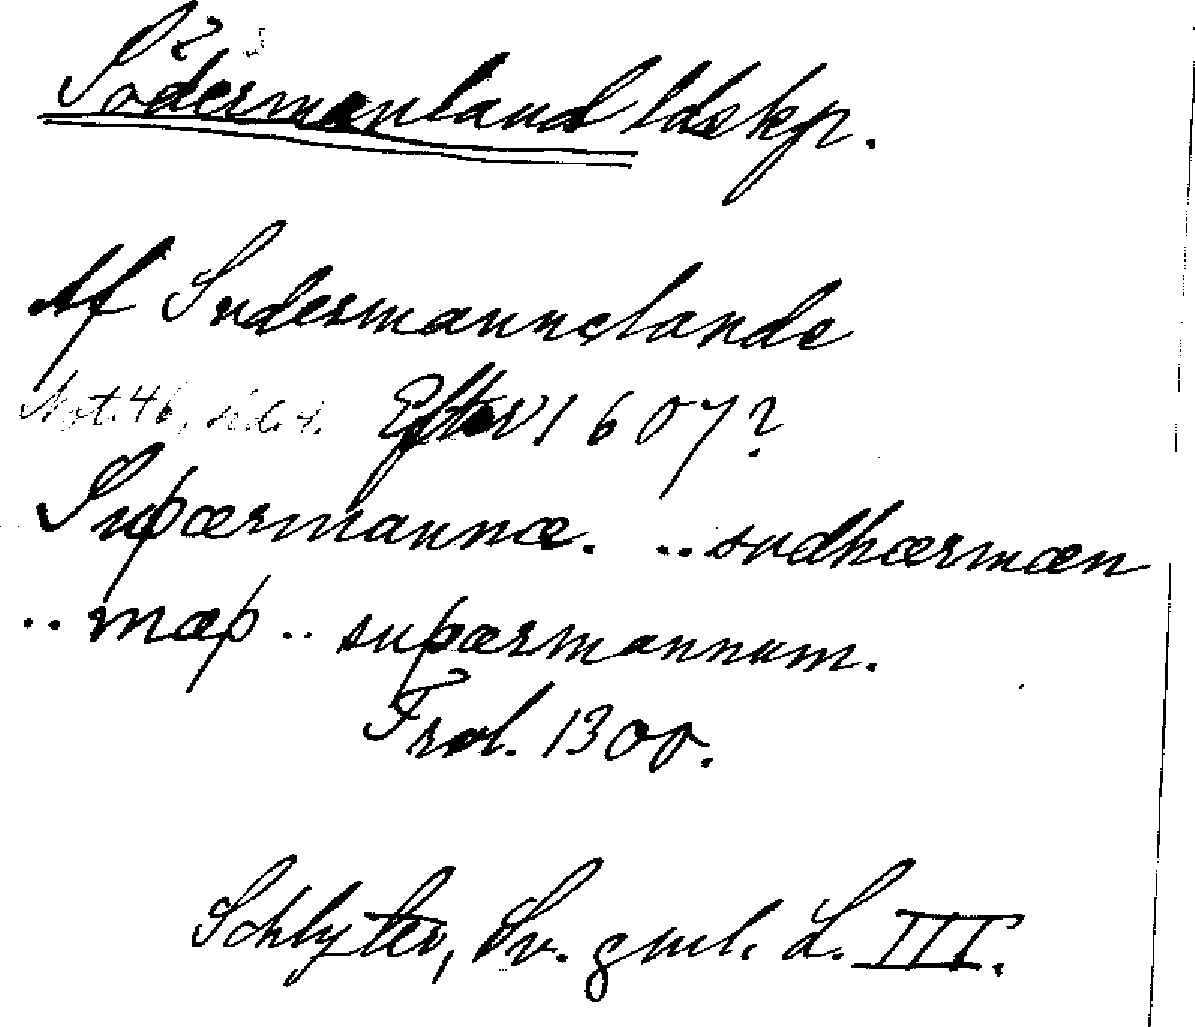 Södermanland ldskp.
Af Sudermannelande
Not. 46, sid. 4. Efter 1607?
Suþærmannæ. .. sudhærmæn
.. mæþ .. suþærmannum.
Frol. 1300.
Schlyter, Sv. gml. L. III.